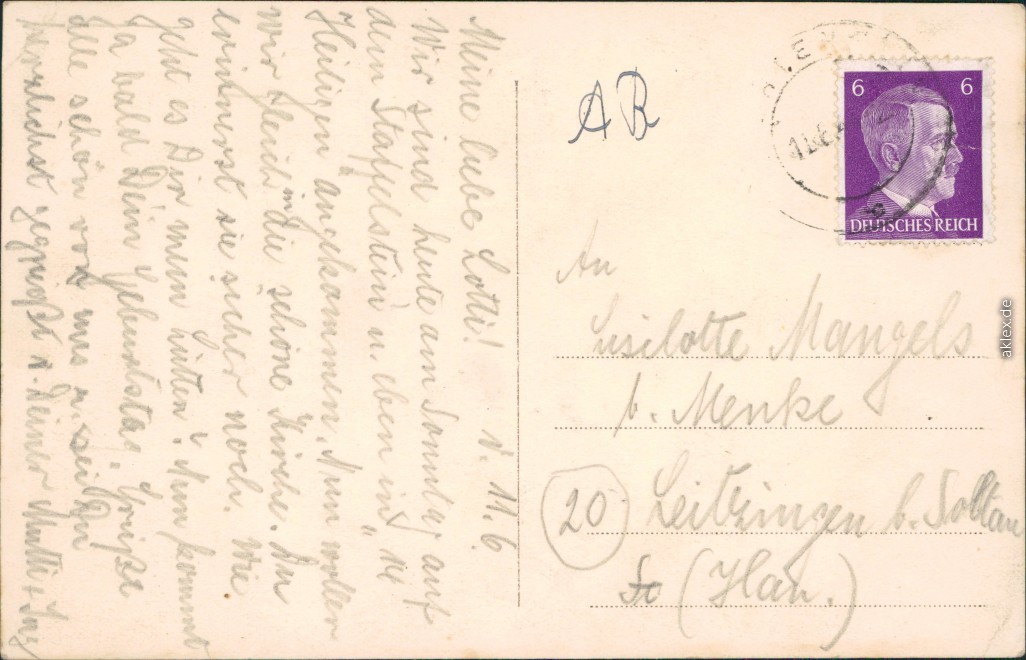 Meine liebe Lotti! d. 11.6.
Wir sind heute am Sonntag auf
den Staffelstein u. eben in „14
Heiligen angekommen. Nun wollen
wir gleich in die schöne Kirche. Du
erinnerst sie sicher noch. Wie
geht es Dir mein Lütten? Nun kommt
ja bald Dein Geburtstag. Grüße
alle schön von uns u. sei Du
herzlichst gegrüßt v. Deiner Mutti +
AB
6 6
DEUTSCHES REICH
An
Liselotte Mangels
b. Menke
(20) Leitzingen b. Soltau
(Han.)
aklex.de